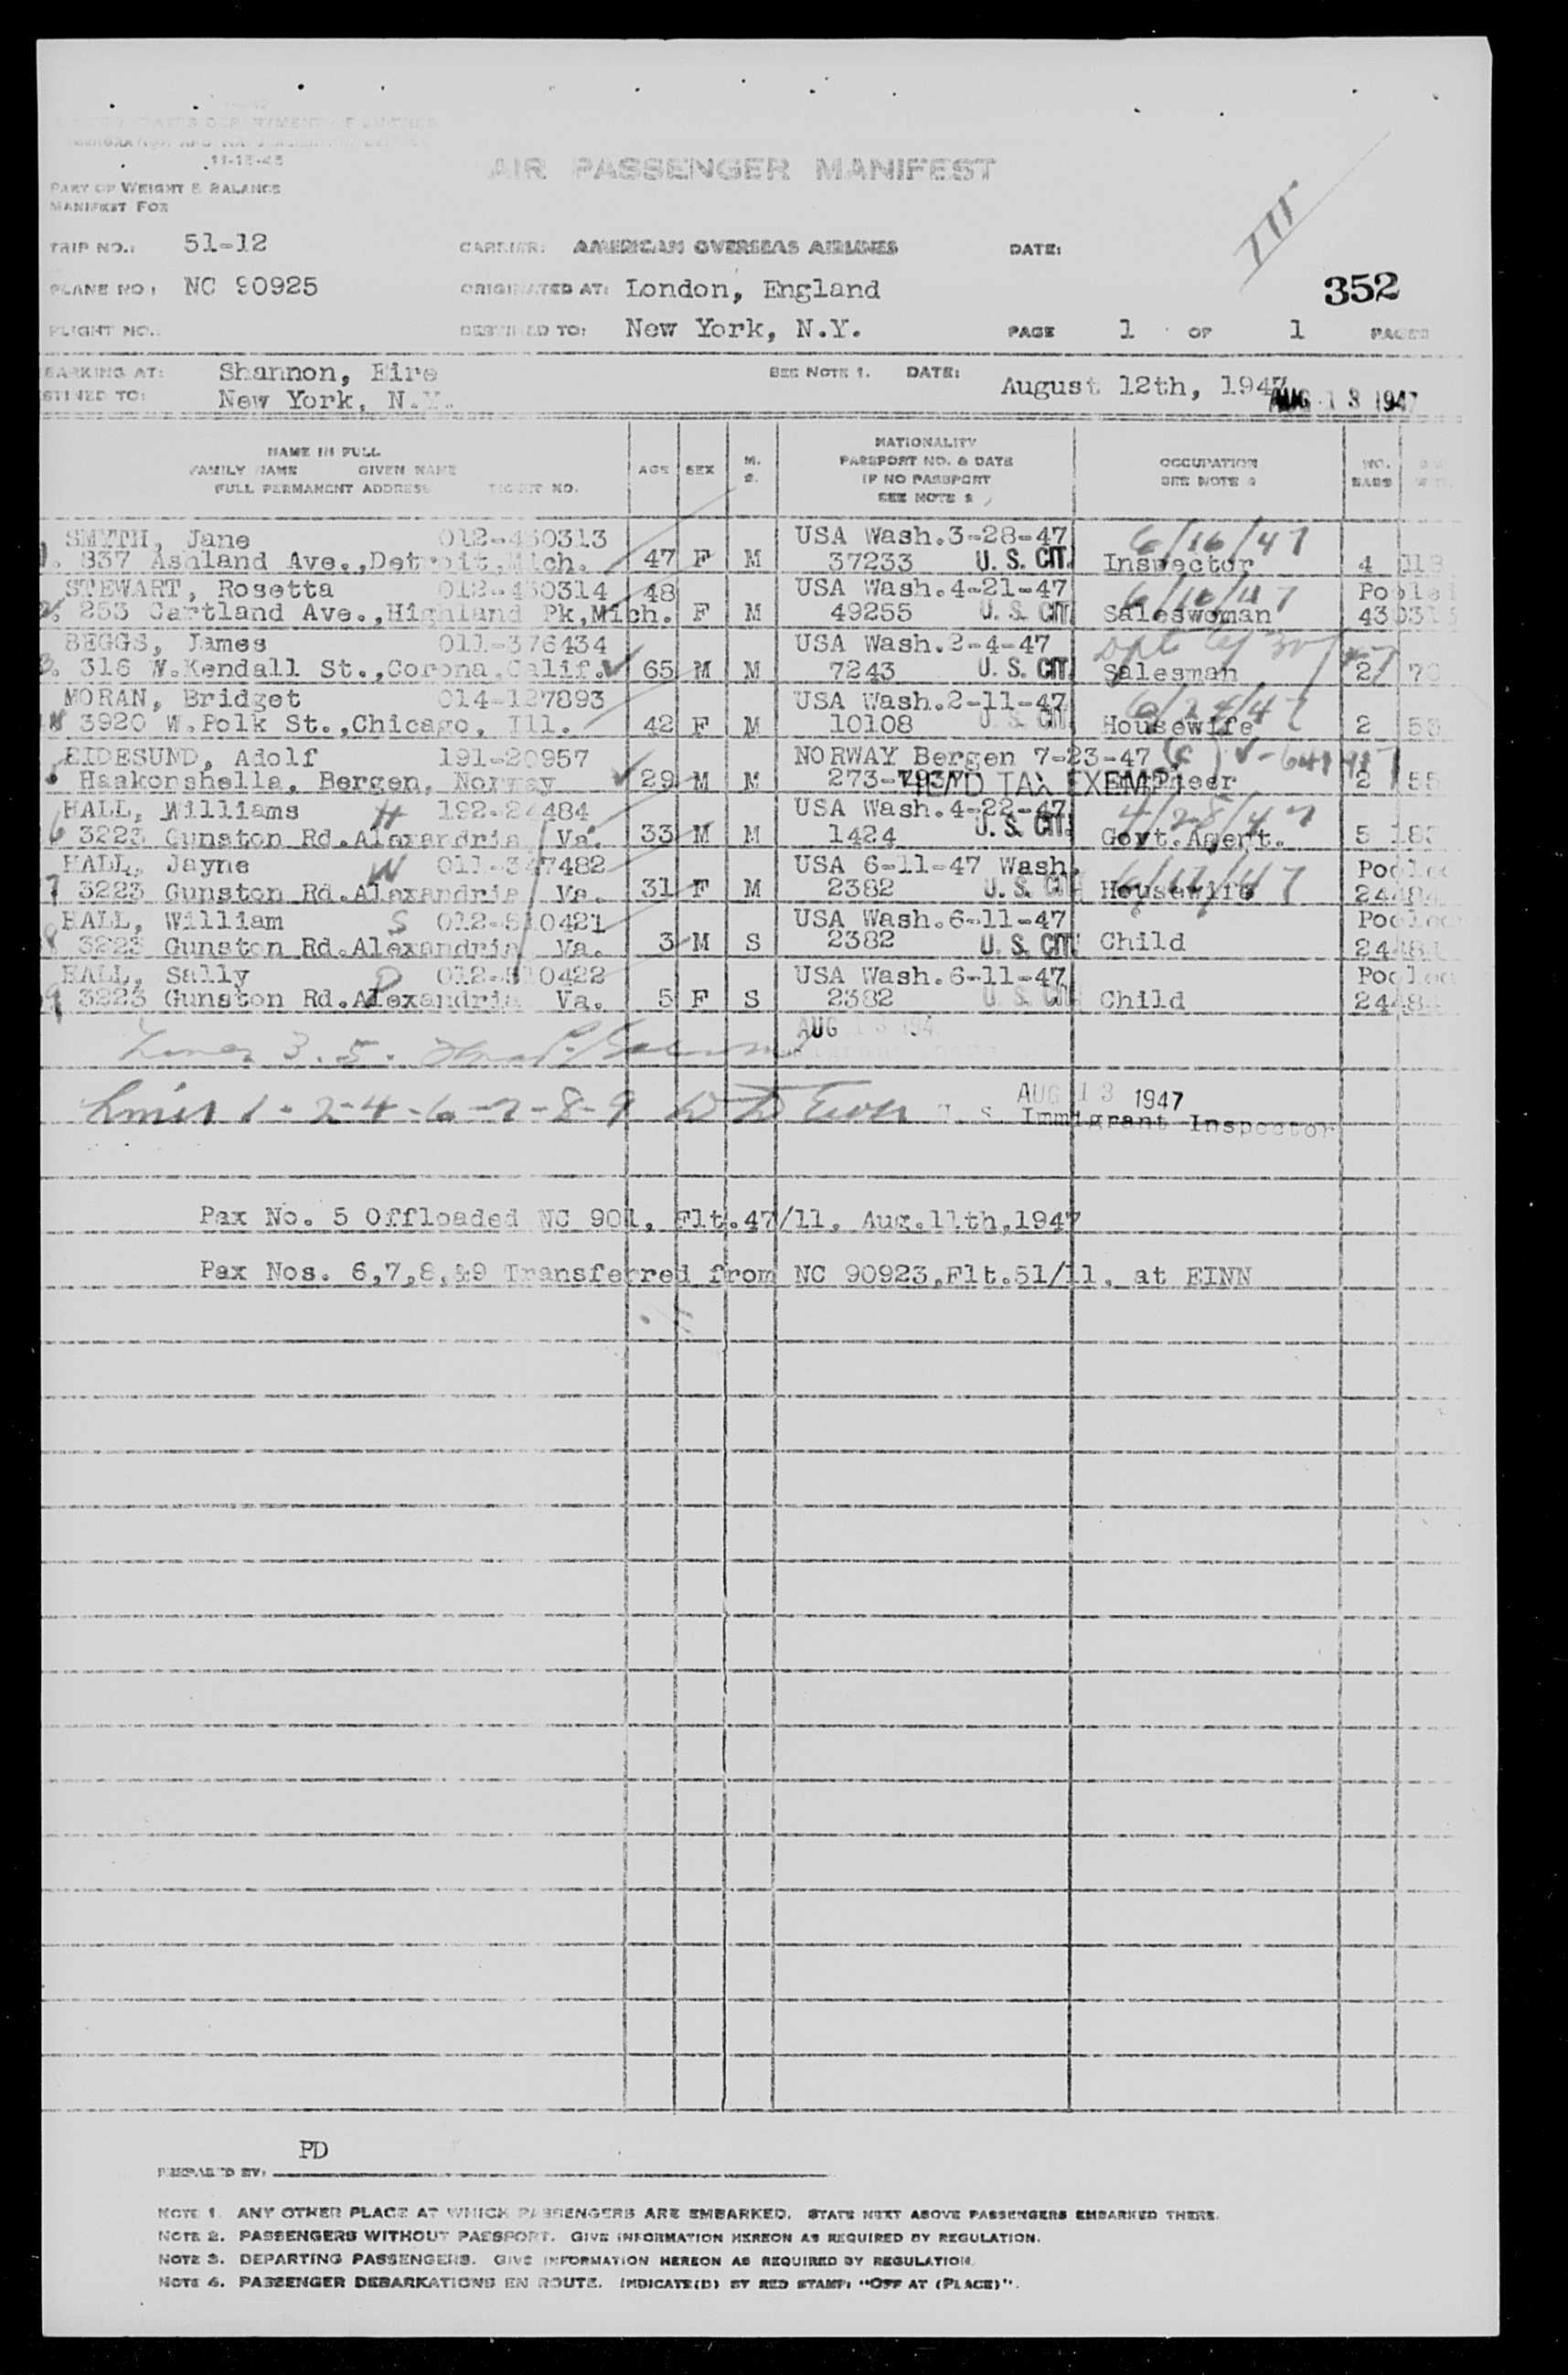 11-12-45
AIR PASSENGER MANIFEST
PART OF WEIGHT & BALANCE
MANIFEST FOR
TRIP NO.: 51-12 CARRIER: AMERICAN OVERSEAS AIRLINES DATE:
III
PLANE NO.: NC 90925 ORIGINATED AT: London, England 352
FLIGHT NO.: DESTINED TO: New York, N.Y. PAGE 1 OF 1 PAGES
BARKING AT: Shannon, Eire SEE NOTE 1. DATE: August 12th, 1947 AUG 13 1947
STINED TO: New York, N.Y.
NAME IN FULL
FAMILY NAME GIVEN NAME
FULL PERMANENT ADDRESS TICKET NO.
AGE SEX M. S.
NATIONALITY
PASSPORT NO. & DATE
IF NO PASSPORT
SEE NOTE 2
OCCUPATION
SEE NOTE 3
NO. BAGS
SMYTH, Jane 012-430313 USA Wash.3-28-47 6/16/47
1. 837 Ashland Ave.,Detroit,Mich. 47 F M 37233 U.S. CIT. Inspector 4
STEWART, Rosetta 012-430314 48 USA Wash.4-21-47 6/16/47
2. 253 Cartland Ave.,Highland Pk,Mich. F M 49255 U.S. CIT. Saleswoman
BEGGS, James 011-376434 USA Wash.2-4-47
3. 316 W.Kendall St.,Corona,Calif. 65 M M 7243 U.S. CIT. Salesman 2 70
MORAN, Bridget 014-127893 USA Wash.2-11-47 6/24/47
3920 W.Polk St.,Chicago, Ill. 42 F M 10108 U.S. CIT. Housewife 2 53
EIDESUND, Adolf 191-20957 NORWAY Bergen 7-23-47
Haakonshella, Bergen, Norway 29 M M HEAD TAX EXEMPT 2 55
HALL, Williams H 192-24484 USA Wash.4-22-47 4/28/47
6 3223 Gunston Rd.Alexandria Va. 33 M M 1424 U.S. CIT. Govt.Agent. 5
HALL, Jayne W 011-347482 USA 6-11-47 Wash. Pooled
7 3223 Gunston Rd.Alexandria Va. 31 F M 2382 U.S. CIT. Housewife 24484
HALL, William S 012-510421 USA Wash.6-11-47 Pooled
8 3223 Gunston Rd.Alexandria Va. 3 M S 2382 U.S. CIT. Child 24484
HALL, Sally D 012-510422 USA Wash.6-11-47 Pooled
9 3223 Gunston Rd.Alexandria Va. 5 F S 2382 U.S. CIT. Child 2448
AUG 13 194
Lines 3. 5.
Lines 1-2-4-6-7-8-9 AUG 13 1947
U. S. Immigrant Inspector
Pax No. 5 Offloaded NC 901, Flt.47/11, Aug.11th,1947
Pax Nos. 6,7,8,&9 Transferred from NC 90923,Flt.51/11, at EINN
PD
PREPARED BY:
NOTE 1. ANY OTHER PLACE AT WHICH PASSENGERS ARE EMBARKED. STATE NEXT ABOVE PASSENGERS EMBARKED THERE.
NOTE 2. PASSENGERS WITHOUT PASSPORT. GIVE INFORMATION HEREON AS REQUIRED BY REGULATION.
NOTE 3. DEPARTING PASSENGERS. GIVE INFORMATION HEREON AS REQUIRED BY REGULATION.
NOTE 4. PASSENGER DEBARKATIONS EN ROUTE. INDICATE(D) BY RED STAMP: "OFF AT (PLACE)".